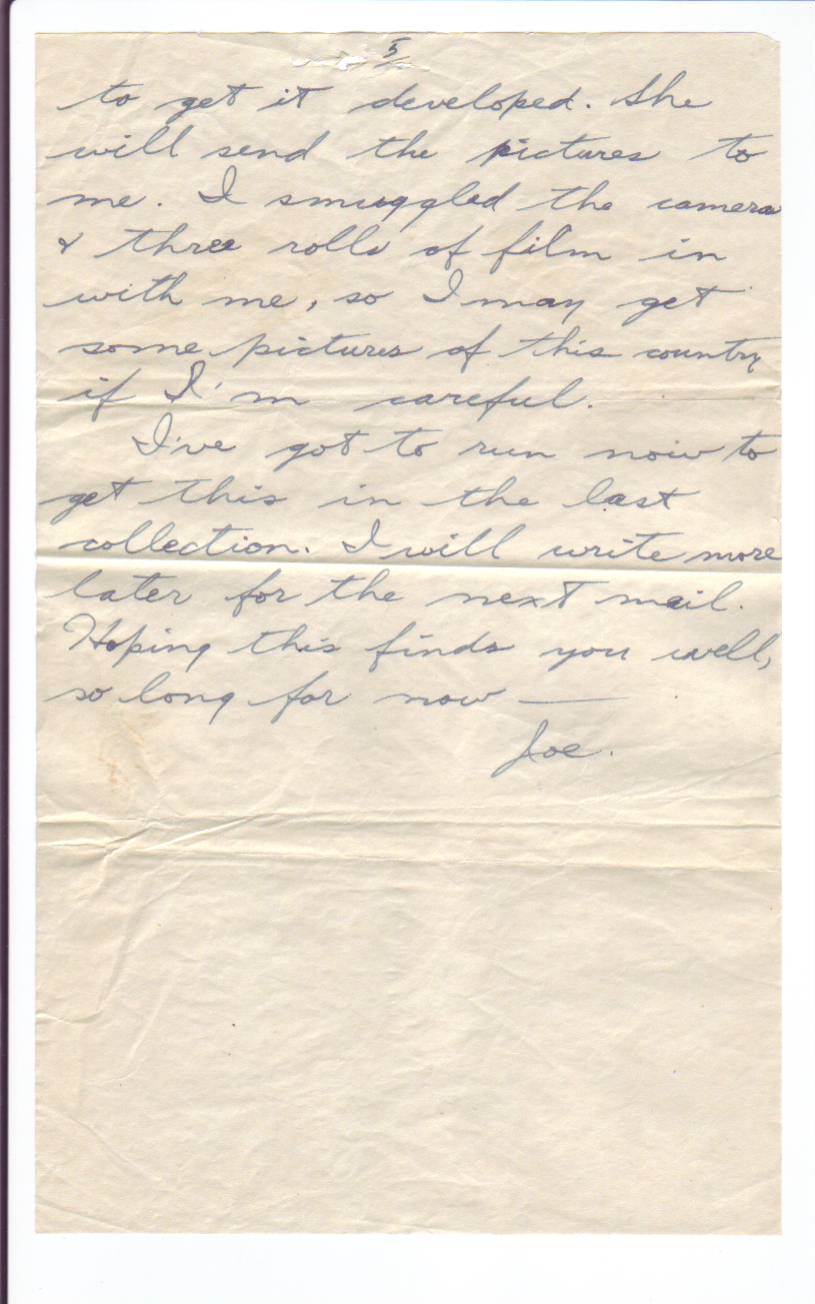 5
to get it developed. She
will send the pictures to
me. I smuggled the camera
& three rolls of film in
with me, so I may get
some pictures of this country
if I'm careful.
I've got to run now to
get this in the last
collection. I will write more
later for the next mail.
Hoping this finds you well,
so long for now —
Joe.